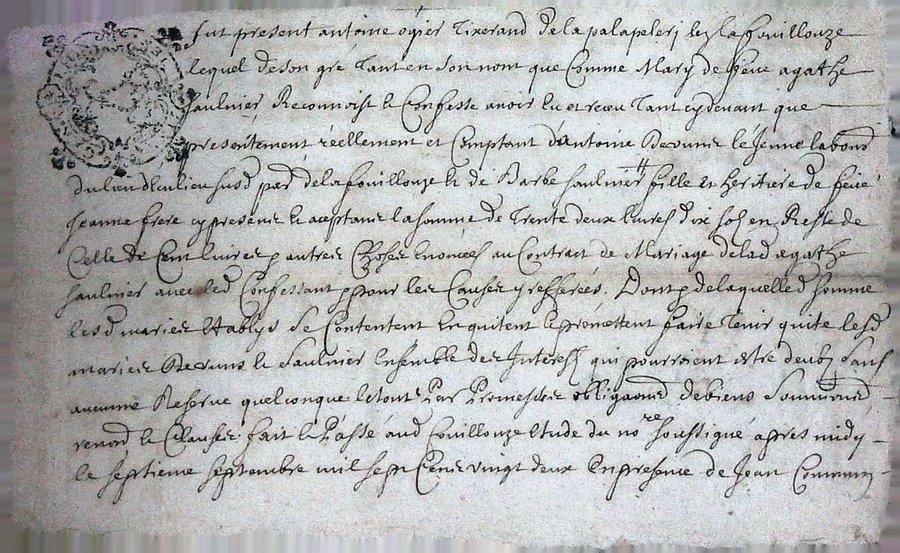 fut present antoine ogier Tixerand de la palapleri les la fouillouze
lequel de son gré Tant en son nom que Comme Mary de feue agathe
saulnier Reconnoist & Confesse avoir eu et receu Tant cydevant que
presentement réellement et Comptant d'antoine le Jeune labourr
par de la fouillouze & de Barbe saulnier fille & heritiere de feüe
Jeanne frere cy presents & aceptants la somme de Trente deux livres dix sols en Reste de
Celle de Cent livres & autres Choses enoncées au Contract de Mariage de lad agathe
saulnier avec led Confessant & pour les Causes y refferées. Dont & de laquelled somme
lesd mariés establys se Contentent en quitent & promettent faire Tenir quite lesd
mariés & Saulnier Ensemble des Interests qui pourroient estre deubs sans
aucunne Reserve quelconque le tout Par Promesses obligaons de biens
renon & Clauses fait & Passé aud fouillouze Etude du nore soussigné apres midy
le septieme septembre mil sept Cents vingt deux En presence de Jean